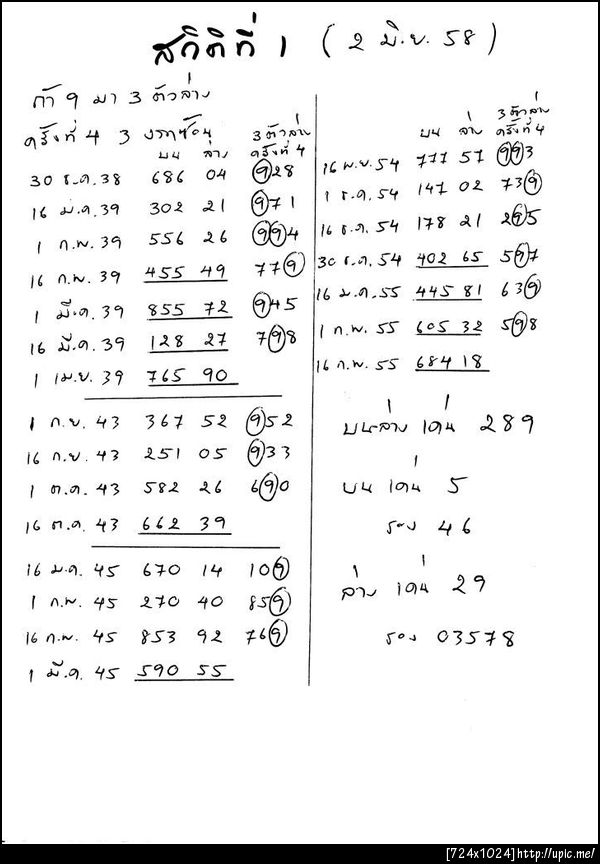 สถิติที่ 1 (2 มิ.ย. 58)
ถ้า 9 มา 3 ตัวล่าง
ครั้งที่ 4 3 งวดซ้อน
บน ล่าง 3 ตัวล่าง ครั้งที่ 4
30 ธ.ค. 38 686 04 928
16 ม.ค. 39 302 21 971
1 ก.พ. 39 556 26 994
16 ก.พ. 39 455 49 779
1 มี.ค. 39 855 72 945
16 มี.ค. 39 128 27 798
1 เม.ย. 39 765 90
1 ก.ย. 43 367 52 952
16 ก.ย. 43 251 05 933
1 ต.ค. 43 582 26 690
16 ต.ค. 43 662 39
16 ม.ค. 45 670 14 109
1 ก.พ. 45 270 40 859
16 ก.พ. 45 853 92 769
1 มี.ค. 45 590 55
3 ตัวล่าง
บน ล่าง ครั้งที่ 4
16 พ.ย. 54 777 57 993
1 ธ.ค. 54 147 02 739
16 ธ.ค. 54 178 21 295
30 ธ.ค. 54 402 65 597
16 ม.ค. 55 445 81 639
1 ก.พ. 55 605 32 598
16 ก.พ. 55 684 18
บนล่าง เด่น 289
บน เด่น 5
รอง 46
ล่าง เด่น 29
รอง 03578
[724x1024]http://upic.me/